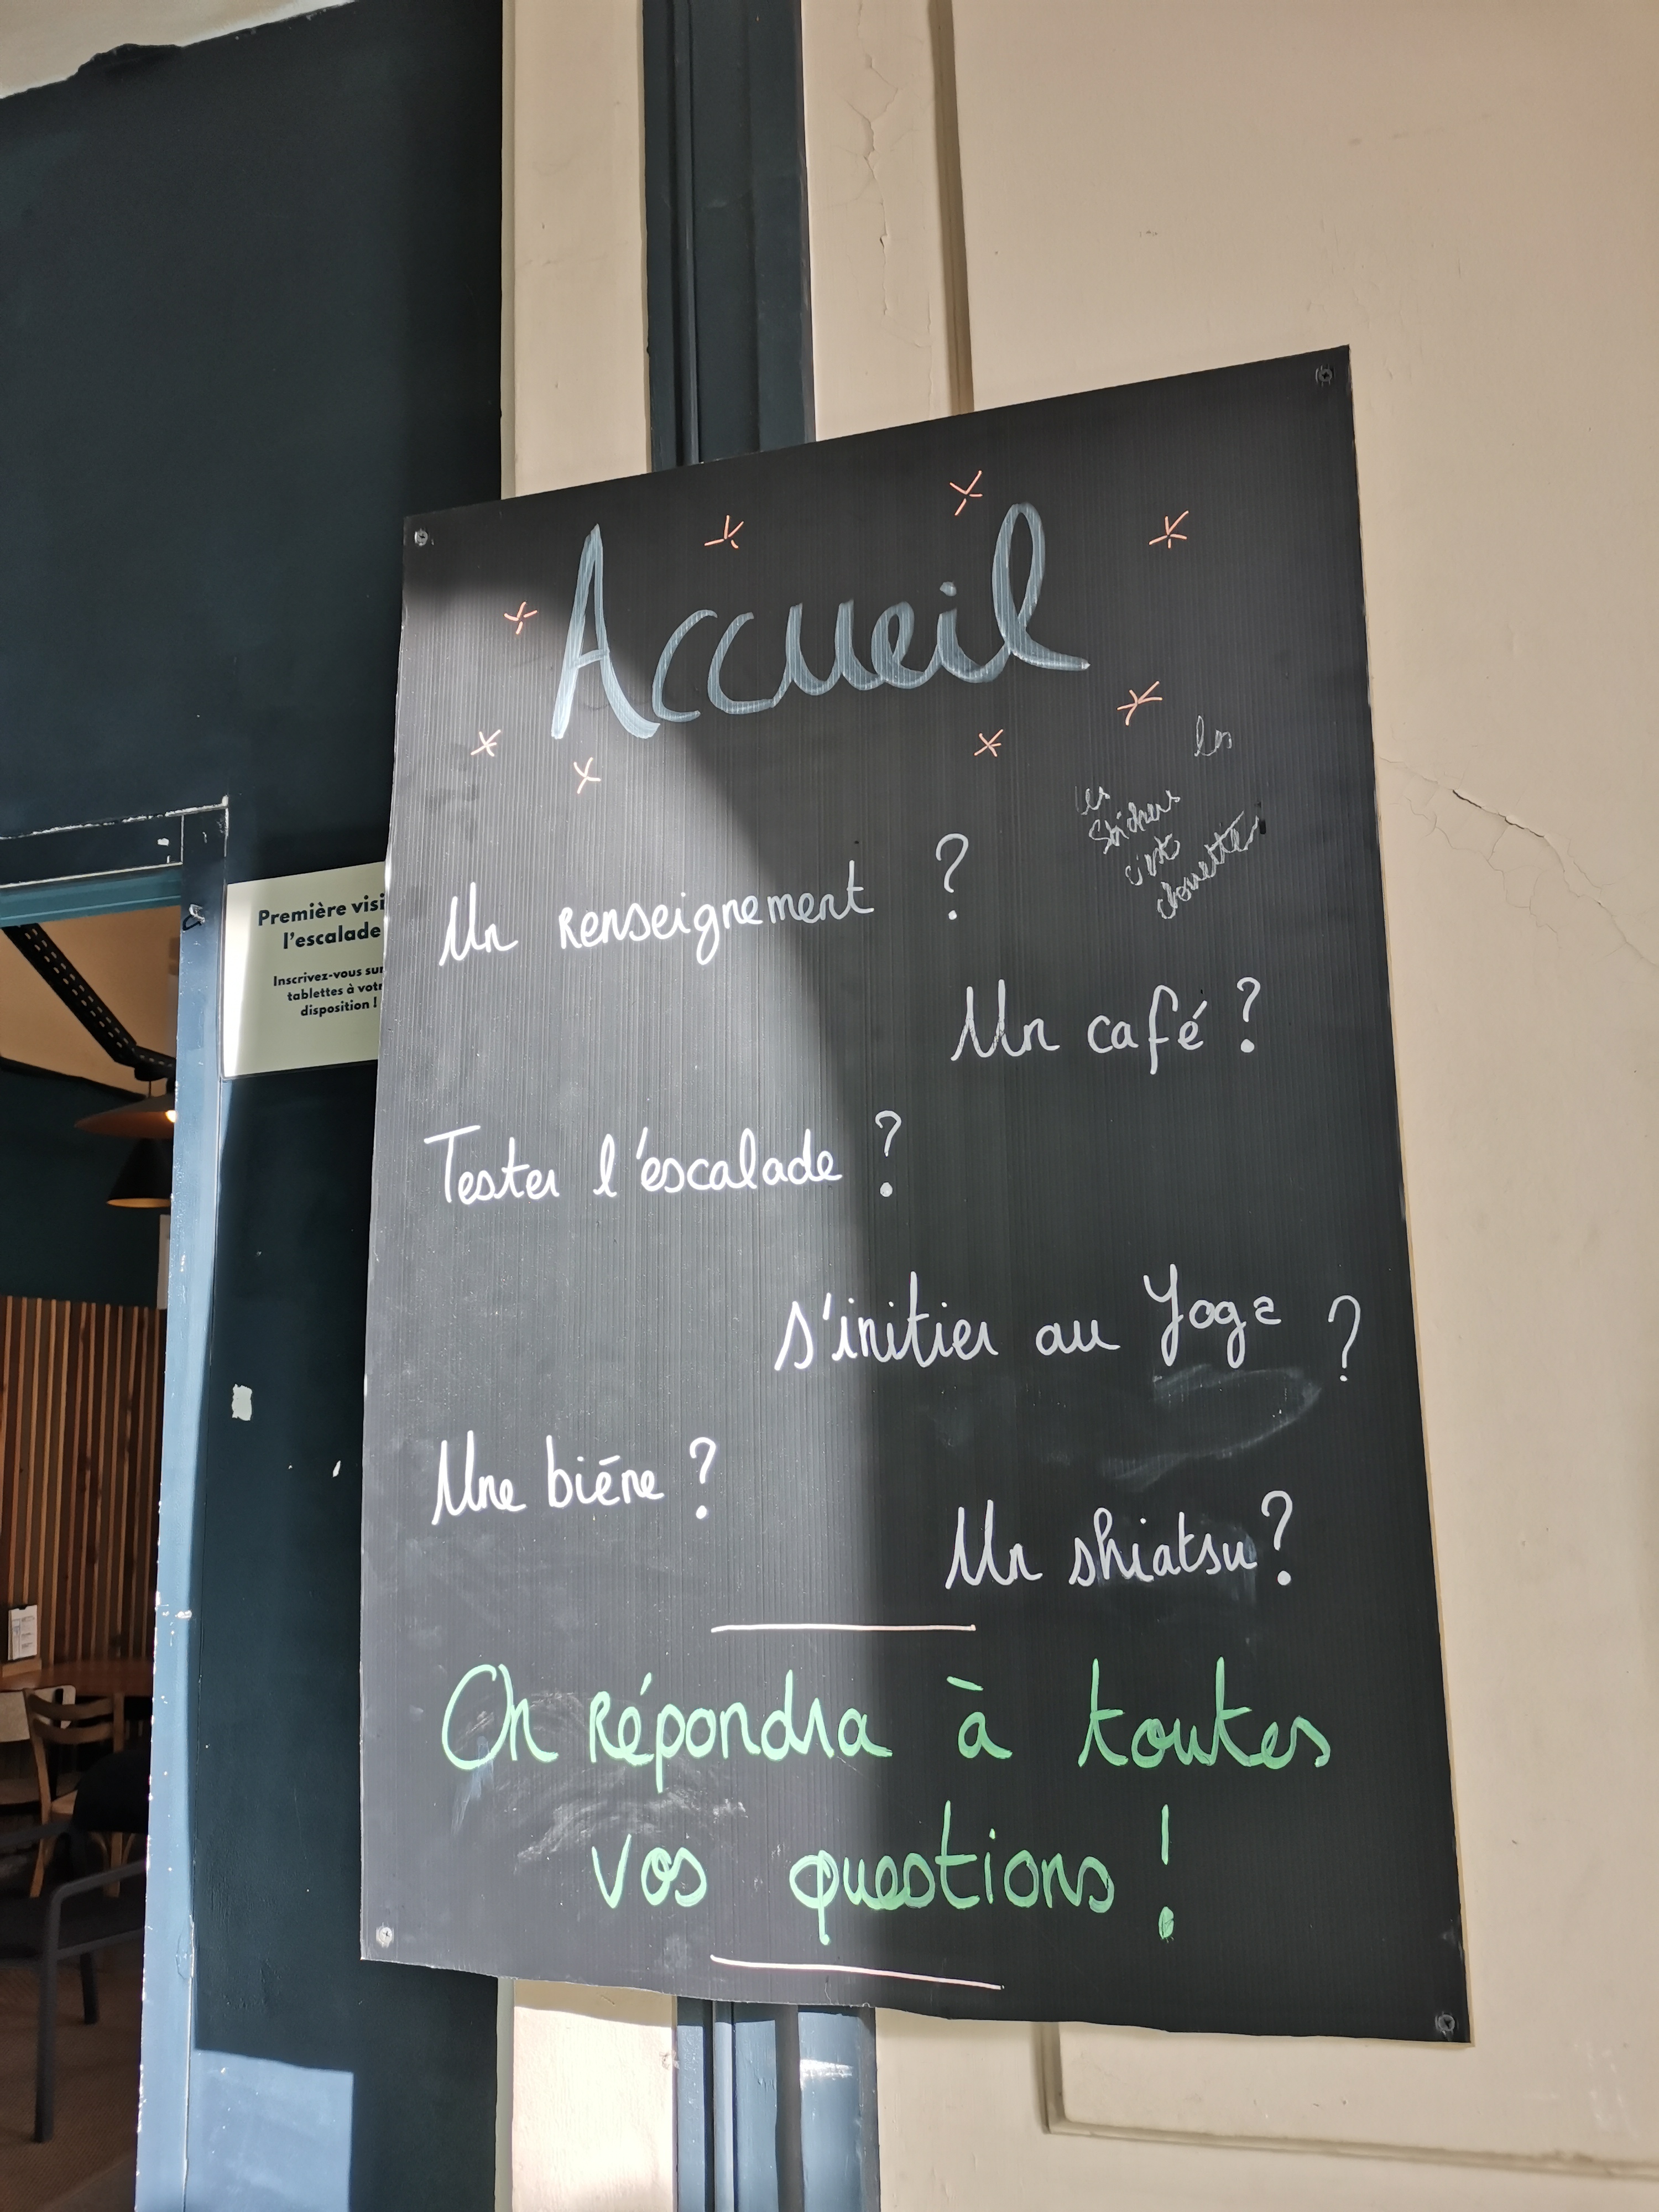 Accueil
les
les
Stickers
c'est
chouette
Première visi
l'escalade
Inscrivez-vous sur
tablettes à votr
disposition !
Un renseignement ?
Un café ?
Tester l'escalade ?
S'initier au Yoga ?
Une bière ?
Un shiatsu ?
On répondra à toutes
vos questions !